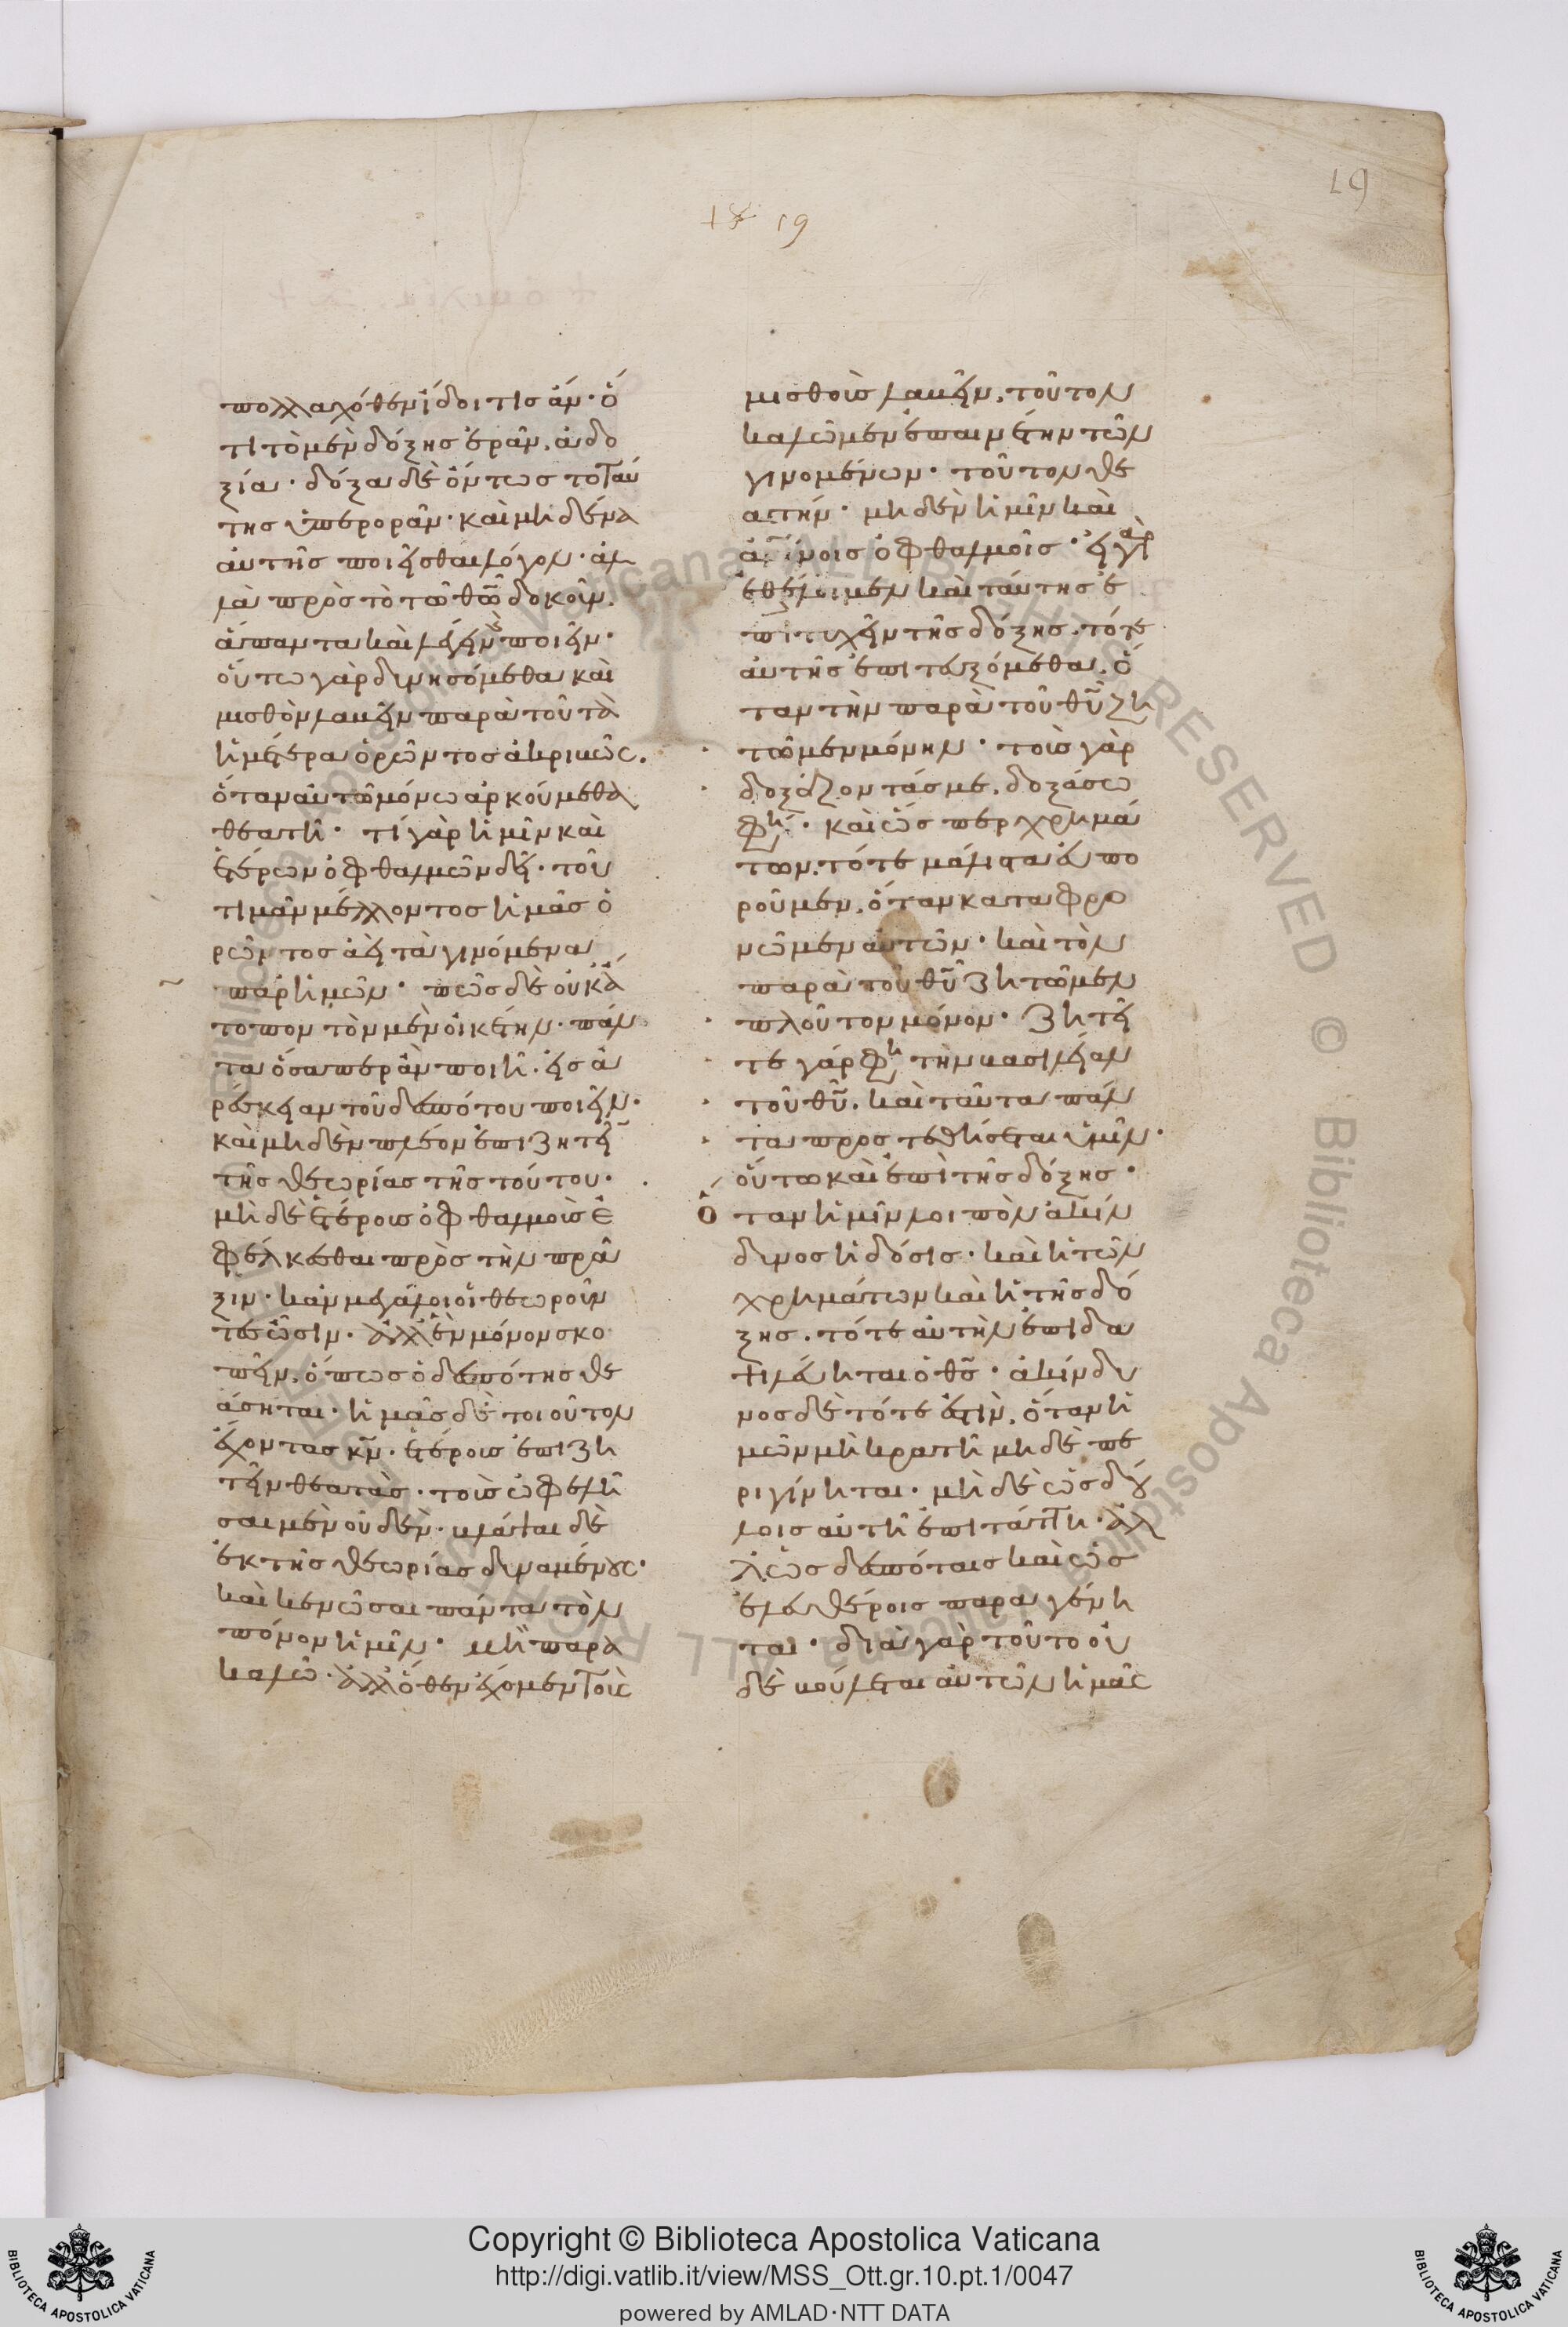 19
18 19
πολλαχόθεν ἴδοι τις ἄν· ὅ
τι τὸ μὲν δόξης ἐρᾶν, ἀδο
ξία· δόξα δὲ ὄντως τὸ ταύ
της ὑπερορᾶν· καὶ μηδένα
αὐτῆς ποιεῖσθαι λόγον· ἀλ
λὰ πρὸς τὸ τῶ θῶ δοκοῦν,
ἅπαντα καὶ λέγειν καὶ ποιεῖν·
οὕτω γὰρ δυνησόμεθα καὶ
μισθὸν λαβεῖν παρὰ τοῦ τὰ
ἡμέτερα ὁρῶντος ἀκριβῶς.
ὅταν αὐτῶ μόνω ἀρκούμεθα
θεατῆ· τί γὰρ ἡμῖν καὶ
ἑτέρων ὀφθαλμῶν δεῖ· τοῦ
τιμᾶν μέλλοντος ἡμᾶς ὁ
ρῶντος ἀεὶ τὰ γινόμενα
παρ ἡμῶν· πῶς δὲ οὐκ ἄ
τοπον τὸν μὲν οἰκέτην· πάν
τα ὅσαπερ ἂν ποιῆ· εἰς ἀ
ρέσκειαν τοῦ δεσπότου ποιεῖν·
καὶ μηδὲν πλέον ἐπιζητεῖ
τῆς θεωρίας τῆς τούτου·
μὴ δὲ ἑτέροις ὀφθαλμοὺς ἐ
φέλκεσθαι πρὸς τὴν πρᾶ
ξιν· κἂν μεγάλοι οἱ θεωροῦν
τες ὦσιν· ἀλλ ἓν μόνον σκο
πεῖν, ὅπως ὁ δεσπότης θε
άσηται· ἡμᾶς δὲ τοιοῦτον
ἔχοντας κν· ἑτέρους ἐπιζη
τεῖν θεατάς· τοὺς ὠφελῆ
σαι μὲν οὐδὲν· βλάψαι δὲ
ἐκ τῆς θεωρίας δυναμένους·
καὶ κενῶσαι πάντα τὸν
πόνον ἡμῖν· μὴ παρα
καλῶ· ἀλλ ὅθεν ἔχομεν τοὺς
μισθοὺς λαβεῖν, τοῦτον
καλῶμεν ἐπαινέτην τῶν
γινομένων· τοῦτον θε
ατήν· μηδὲν ἡμῖν καὶ
ὀφθαλμοῖς· εἰ γὰρ
ἐθέλοιμεν καὶ ταύτης ἐ
πιτυχεῖν τῆς δόξης, τότε
αὐτῆς ἐπιτευξόμεθα, ὅ
ταν τὴν παρὰ τοῦ θυ ζη
τῶμεν μόνην· τοὺς γὰρ
δοξάζοντάς με, δοξάσω
φη· καὶ ὥσπερ χρημά
των, τότε μάλιστα εὐπο
ροῦμεν, ὅταν καταφρο
νῶμεν αὐτῶν· καὶ τὸν
παρὰ τοῦ θυ ζητῶμεν
πλοῦτον μόνον· ζητεῖ
τε γάρ φη τὴν βασιλείαν
τοῦ θυ, καὶ ταῦτα πάν
τα προστεθήσεται ὑμῖν·
οὕτω καὶ ἐπὶ τῆς δόξης·
Ὅταν ἡμῖν λοιπὸν ἀκίν
δυνος ἡ δόσις· καὶ ἡ τῶν
χρημάτων καὶ ἡ τῆς δό
ξης, τότε αὐτὴν ἐπιδα
ψιλεύηται ὁ θς· ἀκίνδυ
νος δὲ τότε ἐστὶν, ὅταν ἡ
μῶν μὴ κρατῆ μηδὲ πε
ριγίνηται· μὴ δὲ ὡς δού
λοις αὐτῆ ἐπιτάττη· ἀλ
λ ὡς δεσπόταις καὶ ὡς
ἐλευθέροις παραγένη
ται· διὰ γὰρ τοῦτο οὐ
δὲ βούλεται αὐτῶν ἡμᾶς
Copyright © Biblioteca Apostolica Vaticana
http://digi.vatlib.it/view/MSS_Ott.gr.10.pt.1/0047
powered by AMLAD·NTT DATA
BIBLIOTECA APOSTOLICA VATICANA
BIBLIOTECA APOSTOLICA VATICANA